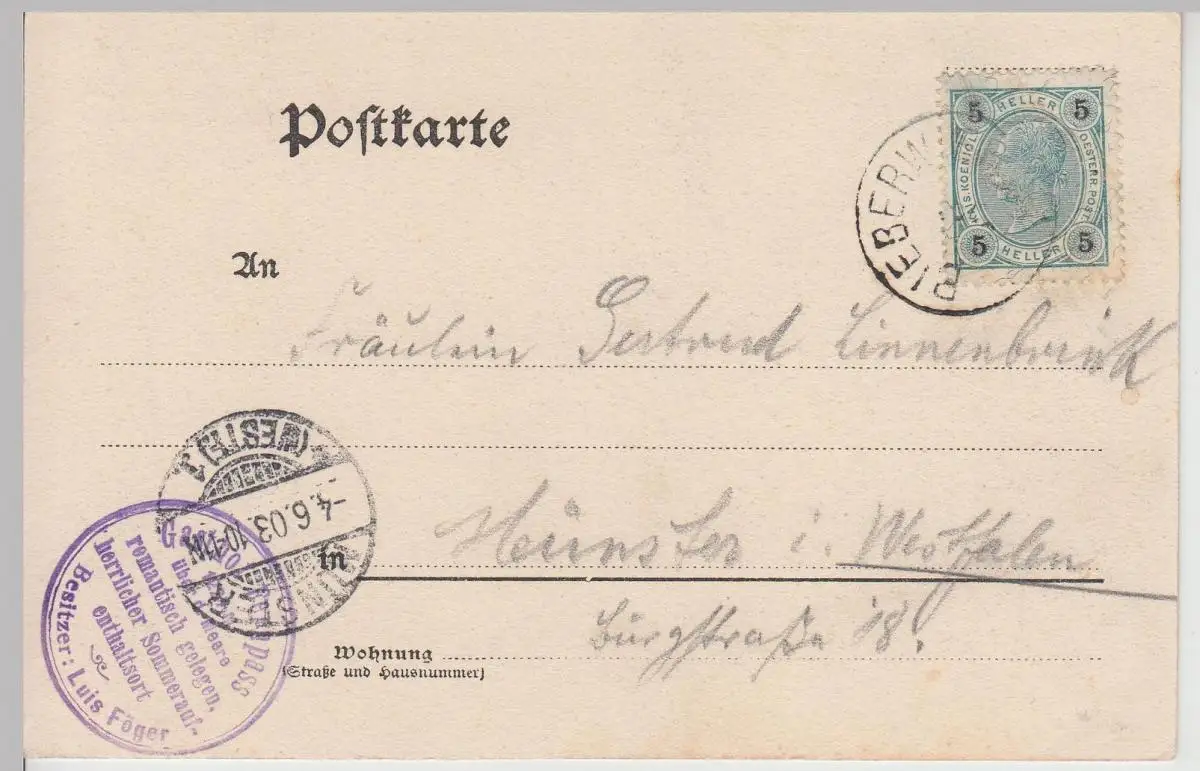 Postkarte
5 HELLER 5
KAIS. KOENIGL. OESTERR. POST
5 HELLER 5
BIEBERW
An
Fräulein Gertrud Linnenbrink
MÜNSTER (WESTF.) 1
-4.6.03. 10-11N.
in Münster i. Westfalen
Burgstraße 18.
Wohnung
(Straße und Hausnummer)
romantisch gelegen,
herrlicher Sommerauf-
enthaltsort
Besitzer: Luis Föger